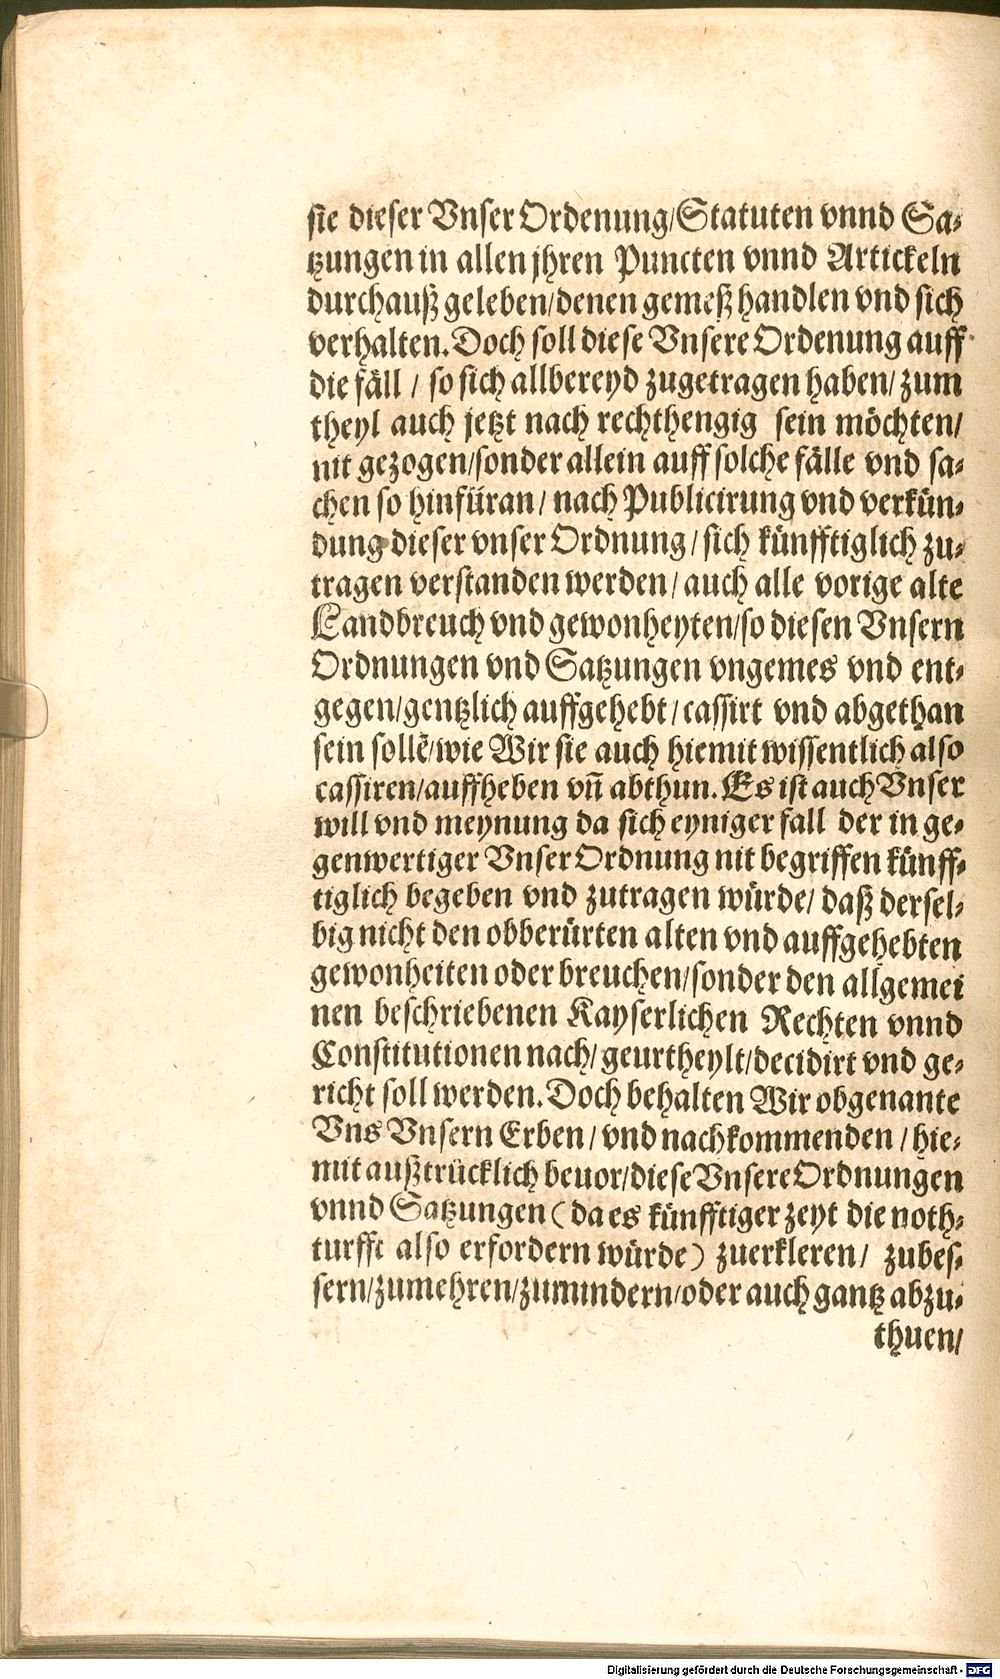 sie dieser Vnser Ordenung/Statuten vnnd Sa-
tzungen in allen jhren Puncten vnnd Artickeln
durchauß geleben/denen gemeß handlen vnd sich
verhalten. Doch soll diese Vnsere Ordenung auff
die fäll / so sich allbereyd zugetragen haben/ zum
theyl auch jetzt nach rechthengig sein möchten/
nit gezogen/sonder allein auff solche fälle vnd sa-
chen so hinfüran / nach Publicirung vnd verkün-
dung dieser vnser Ordnung / sich künfftiglich zu-
tragen verstanden werden / auch alle vorige alte
Landbreuch vnd gewonheyten/so diesen Vnsern
Ordnungen vnd Satzungen vngemes vnd ent-
gegen/gentzlich auffgehebt / cassirt vnd abgethan
sein sollē/wie Wir sie auch hiemit wissentlich also
cassiren/auffheben vn̄ abthun. Es ist auch Vnser
will vnd meynung da sich eyniger fall der in ge-
genwertiger Vnser Ordnung nit begriffen künff-
tiglich begeben vnd zutragen würde/ daß dersel-
big nicht den obberürten alten vnd auffgehebten
gewonheiten oder breuchen/sonder den allgemei
nen beschriebenen Kayserlichen Rechten vnnd
Constitutionen nach/ geurtheylt/decidirt vnd ge-
richt soll werden. Doch behalten Wir obgenante
Vns Vnsern Erben / vnd nachkommenden / hie-
mit außtrücklich beuor/diese Vnsere Ordnungen
vnnd Satzungen (da es künfftiger zeyt die noth-
turfft also erfordern würde) zuerkleren/ zubes-
sern/zumehren/zumindern/oder auch gantz abzu-
thuen/
Digitalisierung gefördert durch die Deutsche Forschungsgemeinschaft - DFG